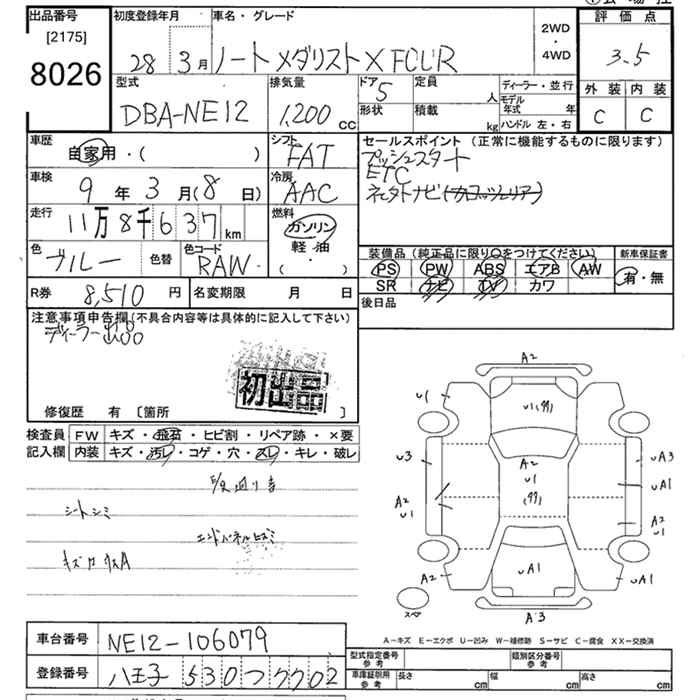 出品番号
[2175]
8026
初度登録年月
28 3月
車名・グレード
ノート メダリスト X FOUR
2WD
・
4WD
評価点
3.5
外装 内装
C C
型式
DBA-NE12
排気量
1,200 cc
ドア 5
形状
定員 人
積載 kg
ディーラー・並行
モデル年式 年
ハンドル 左・右
車歴
自家用・( )
シフト
FAT
車検
9年3月(8日)
冷房
AAC
走行
11万8千637km
燃料
ガソリン
軽・油
・( )
色
ブルー
色替
色コード
RAW
R券 8,510円
名変期限 月 日
セールスポイント (正常に機能するものに限ります)
プッシュスタート
ETC
装備品(純正品に限り○をつけてください)
PS PW ABS エアB AW
SR ナビ TV カワ
新車保証書
有・無
後日品
注意事項申告欄(不具合内容等は具体的に記入して下さい)
ディーラー出品
初出品
修復歴 有 〔箇所 〕
検査員記入欄
FW キズ・飛石・ヒビ割・リペア跡・×要
内装 キズ・汚レ・コゲ・穴・スレ・キレ・破レ
シートシミ
A2
U1
U3
A2
U1
A2
U1
A2
U1
UA3
UA1
A2
U1
UA1
UA1
A3
スペア
A-キズ E-エクボ U-凹み W-補修跡 S-サビ C-腐食 XX-交換済
車台番号 NE12-106079
登録番号 八王子 530 つ 7702
型式指定番号
参考
類別区分番号
参考
車庫証明用
参考
長さ cm 幅 cm 高さ cm